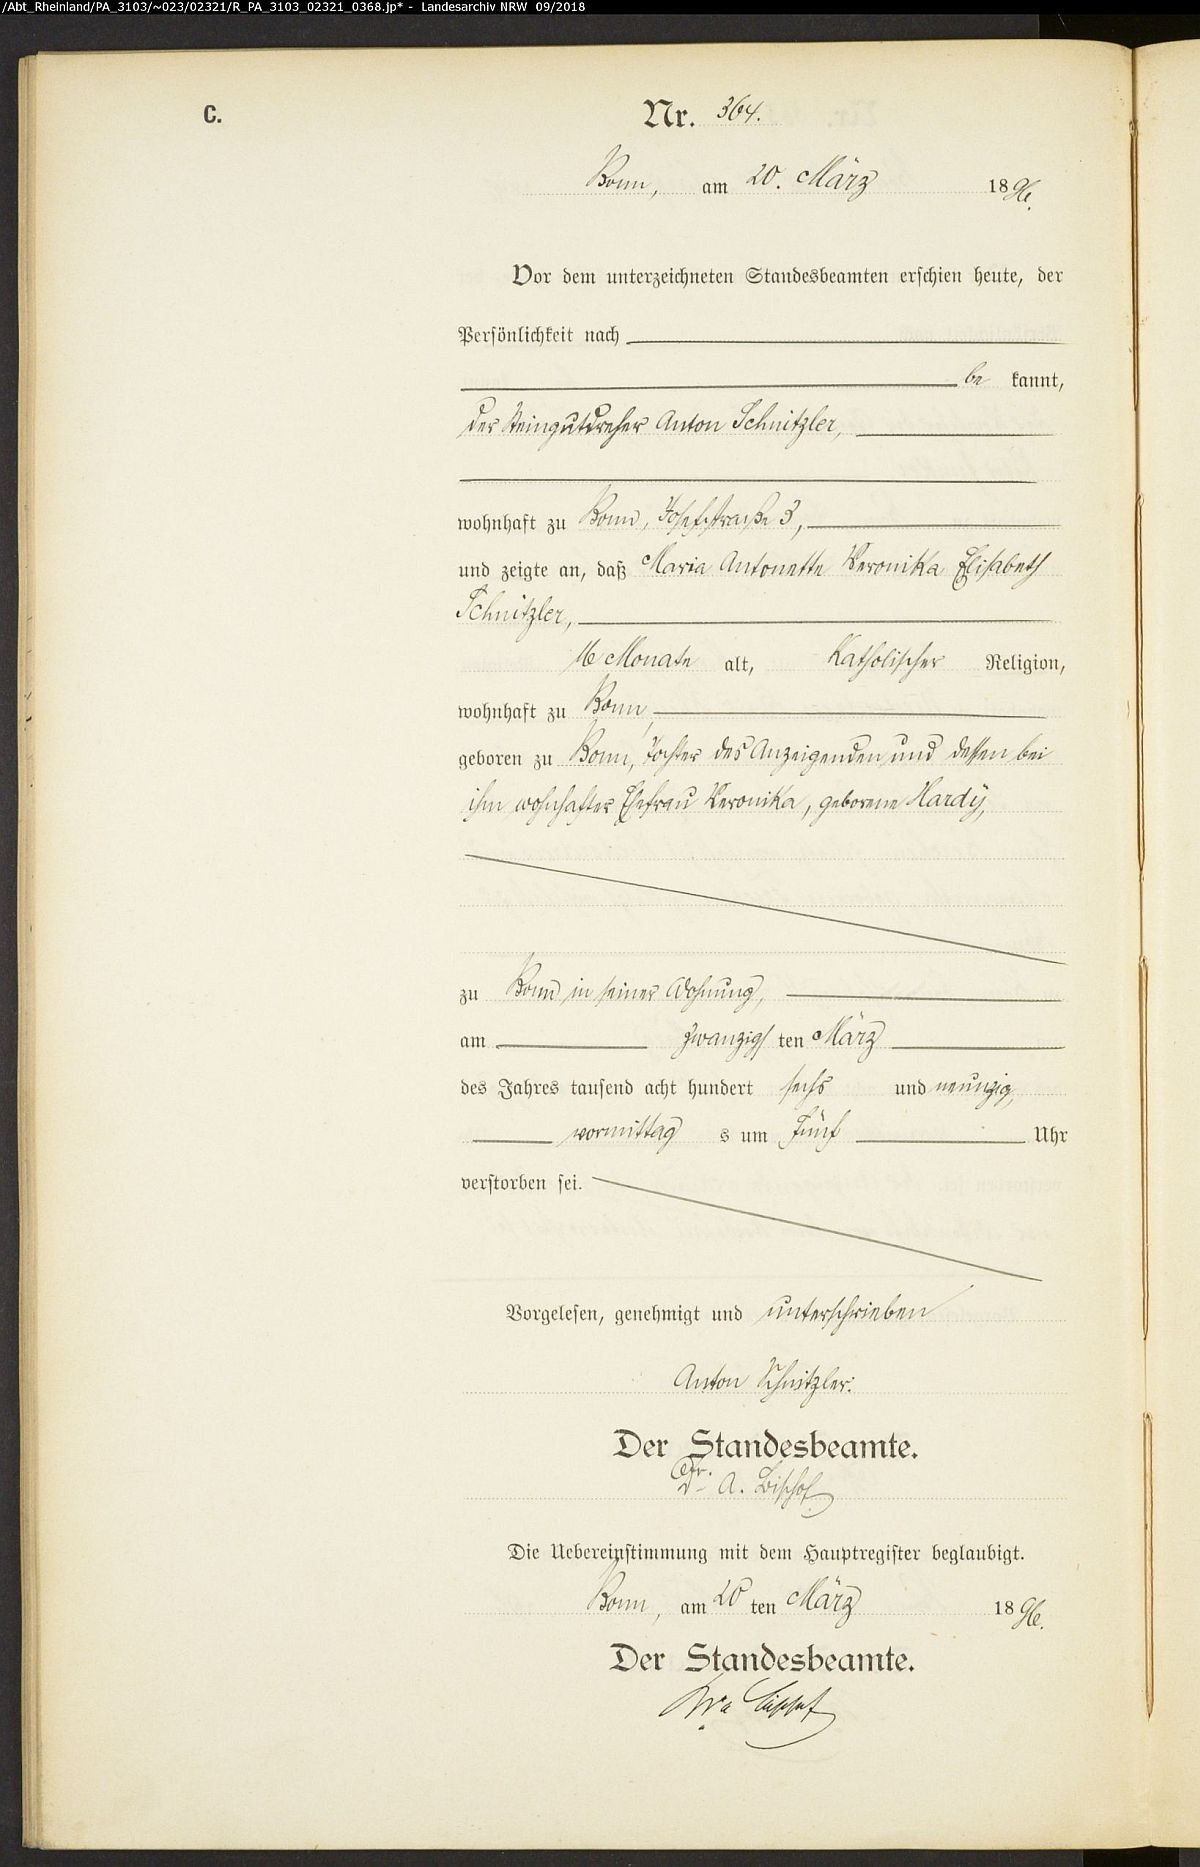 /Abt_Rheinland/PA_3103/~023/02321/R_PA_3103_02321_0368.jp* - Landesarchiv NRW 09/2018
C.
Nr. 364.
Bonn, am 20. März 1896.
Vor dem unterzeichneten Standesbeamten erschien heute, der
Persönlichkeit nach
be kannt,
der Steingutdreher Anton Schnitzler,
wohnhaft zu Bonn, Josefstraße 3,
und zeigte an, daß Maria Antonette Veronika Elisabeth
Schnitzler,
16 Monate alt, katholischer Religion,
wohnhaft zu Bonn,
geboren zu Bonn, Tochter des Anzeigenden und dessen bei
ihm wohnhafter Ehefrau Veronika, geborene Hardy,
zu Bonn in seiner Wohnung,
am zwanzigs ten März
des Jahres tausend acht hundert sechs und neunzig,
vormittag s um fünf Uhr
verstorben sei.
Vorgelesen, genehmigt und unterschrieben
Anton Schnitzler.
Der Standesbeamte.
A. Bischof
Die Uebereinstimmung mit dem Hauptregister beglaubigt.
Bonn, am 20 ten März 1896.
Der Standesbeamte.
Bischof